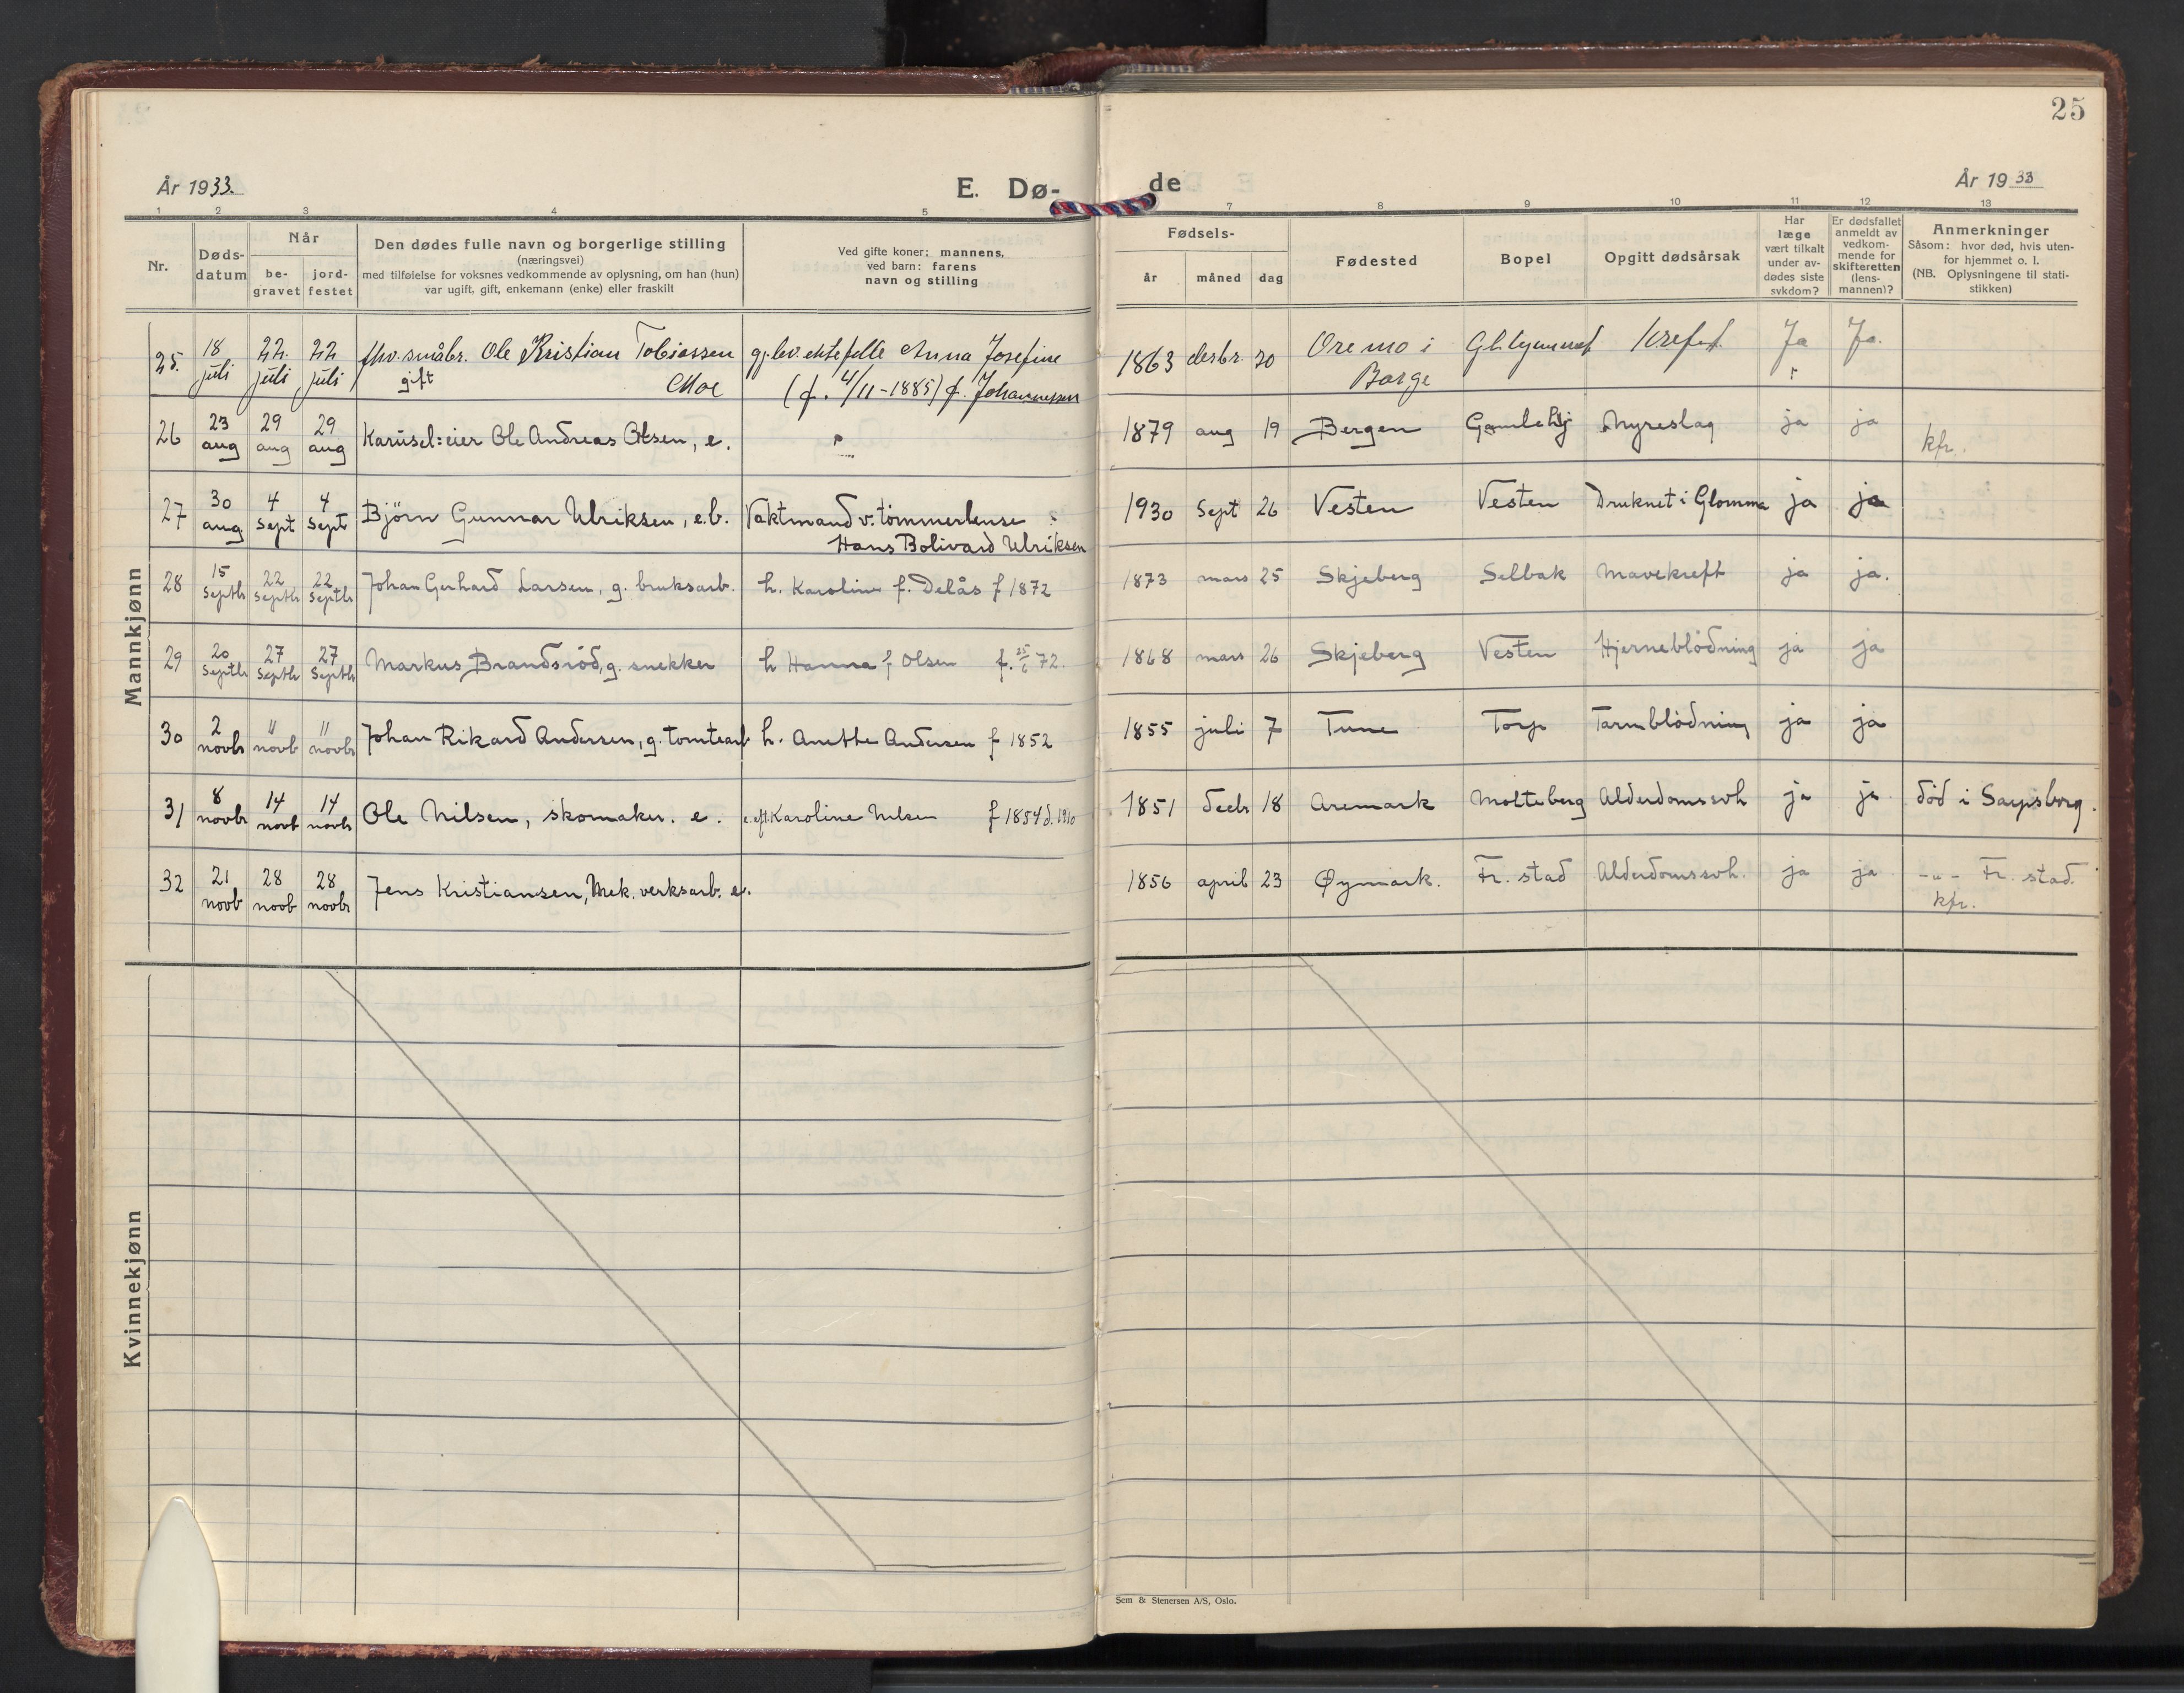 25
År 1933.
E. Dø-
de
År 1933
1 2 3 4 5
7 8 9 10 11 12 13
Nr.
Døds-
datum
Når
be-
gravet
jord-
festet
Den dødes fulle navn og borgerlige stilling
(næringsvei)
med tilføielse for voksnes vedkommende av oplysning, om han (hun)
var ugift, gift, enkemann (enke) eller fraskilt
Ved gifte koner: mannens,
ved barn: farens
navn og stilling
Fødsels-
år måned dag
Fødested
Bopel
Opgitt dødsårsak
Har
læge
vært tilkalt
under av-
dødes siste
sykdom?
Er dødsfallet
anmeldt av
vedkom-
mende for
skifteretten
(lens-
mannen)?
Anmerkninger
Såsom: hvor død, hvis uten-
for hjemmet o. l.
(NB. Oplysningene til stati-
stikken)
Mannkjønn
25. 18 juli 22. juli 22 juli fhv. småbr. Ole Kristian Tobiassen gj.lev. ektefelle Anna Josefine 1863 desbr. 20 Oremo i Ja Ja.
gift Moe (f. 4/11-1885) f. Johannessen Borge
26 23 aug 29 aug 29 aug Karusel=eier Ole Andreas Olsen, e. 1879 aug 19 Bergen Gamleby Nyreslag ja ja kfr.
27 30 aug 4 Sept 4 Sept Björn Gunnar Ulriksen, e.b. Vaktmand v. tömmerlense 1930 Sept 26 Vesten Vesten Druknet i Glomma ja ja
Hans Bolivard Ulriksen
28 15 Septb 22 Septb 22 Septb Johan Gerhard Larsen, g. bruksarb. h. Karoline f. Delås f 1872 1873 mars 25 Skjeberg Selbak Mavekreft ja ja.
29 20 Septb 27 Septb 27 Septb Markus Brandsröd, g. snekker h Hanna f Olsen f. 25/6 72. 1868 mars 26 Skjeberg Vesten Hjerneblödning ja ja
30 2 novbr " novb " novbr Johan Rikard Andersen, g. tomtearb h. Anette Andersen f 1852 1855 juli 7 Tune Torp Tarmblödning ja ja
31 8 novbr 14 novb 14 novbr Ole Nilsen, skomaker. e. e. eft. Karoline Nilsen f 1854 d. 1910 1851 decb 18 Aremark Molteberg Alderdomssvh ja ja död i Sarpsborg.
32 21 novb 28 novb 28 novbr Jens Kristiansen, Mek. verksarb. e. 1856 april 23 Øymark. Fr. stad Alderdomssvh. ja ja -"- Fr. stad.
kfr.
Kvinnekjønn
Sem & Stenersen A/S, Oslo.